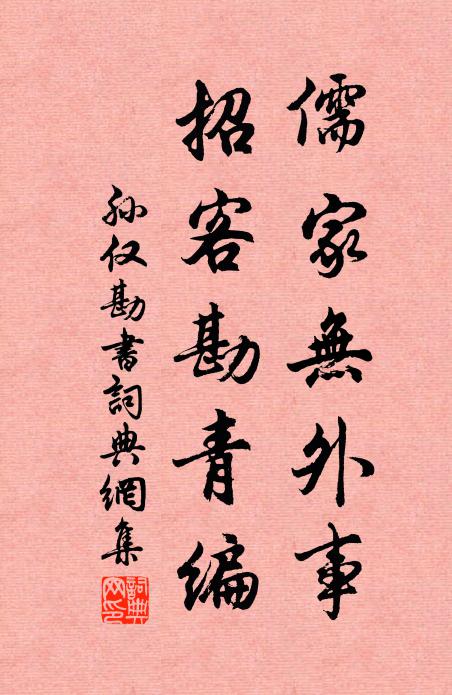 儒家無外事
招客勘青编
孙仅勘書詞典網集
詞典网印